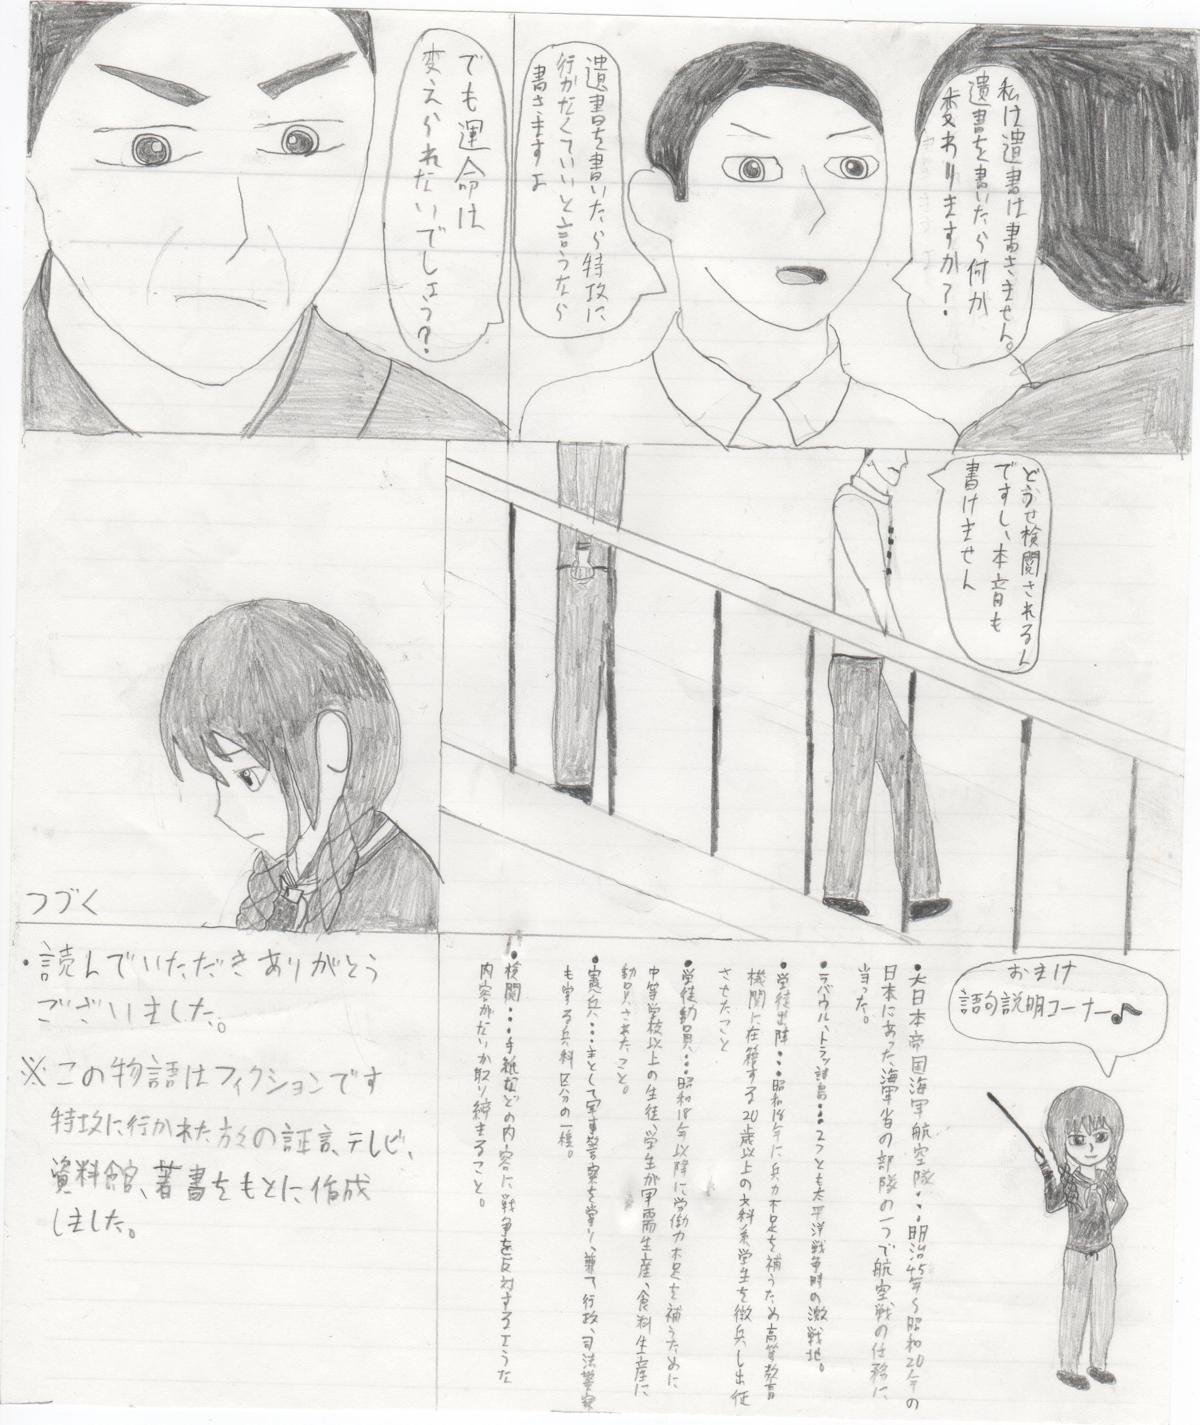 私は遺書は書きません。
遺書を書いたら何か
変わりますか？
遺書を書いたら特攻に
行かなくていいと言うなら
書きますよ
でも運命は
変えられないでしょう？
どうせ検閲されるん
ですし、本音も
書けません
つづく
おまけ
語句説明コーナー♪
•大日本帝国海軍航空隊・・・明治45年〜昭和20年の
日本にあった海軍省の部隊の一つで航空戦の任務に
当った。
•ラバウル、トラック諸島・・・2つとも太平洋戦争時の激戦地。
•学徒出陣・・・昭和18年に兵力不足を補うため高等教育
機関に在籍する20歳以上の文科系学生を徴兵し出征
させたこと
•学徒動員・・・昭和18年以降に労働力不足を補うために
中等学校以上の生徒、学生が軍需生産、食料生産に
動員されたこと。
•憲兵・・・主として軍事警察を掌り、兼て行政、司法警察
も掌る兵科区分の一種。
•検閲・・・手紙などの内容に戦争を反対するような
内容がないか取り締まること。
・読んでいただきありがとう
ございました。
※この物語はフィクションです
特攻に行かれた方々の証言、テレビ、
資料館、著書をもとに作成
しました。